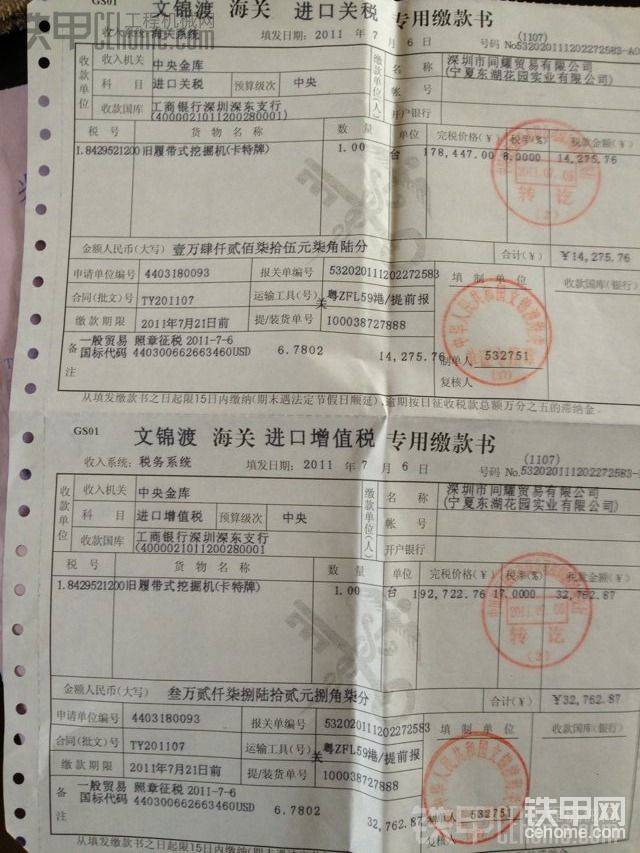 GS01 文锦渡 海关 进口关税 专用缴款书
(1107)
收入系统: 海关系统 填发日期: 2011 年 7 月 6 日 号码 No 532020111202272583-A0
收款单位 收入机关 中央金库 缴款单位(人) 名称 深圳市同耀贸易有限公司
(宁夏东湖花园实业有限公司)
科目 进口关税 预算级次 中央 帐号
收款国库 工商银行深圳深东支行
(4000021011200280001) 开户银行
税号 货物名称 数量 单位 完税价格(¥) 税率(%) 税款金额(¥)
1.8429521200 旧履带式挖掘机(卡特牌) 1.00 台 178,447.00 8.0000 14,275.76
金额人民币(大写) 壹万肆仟贰佰柒拾伍元柒角陆分 合计(¥) ¥14,275.76
申请单位编号 4403180093 报关单编号 532020111202272583 填制单位 收款国库(银行)
合同(批文)号 TY201107 运输工具(号) 关粤ZFL59港/提前报
缴款期限 2011年7月21日前 提/装货单号 100038727888
备注 一般贸易 照章征税 2011-7-6
国标代码 440300662663460USD 6.7802 14,275.76 制单人 532751
复核人
从填发缴款书之日起限15日内缴纳(期末遇法定节假日顺延),逾期按日征收税款总额万分之五的滞纳金。
GS01 文锦渡 海关 进口增值税 专用缴款书
(1107)
收入系统: 税务系统 填发日期: 2011 年 7 月 6 日 号码 No. 532020111202272583-
收款单位 收入机关 中央金库 缴款单位(人) 名称 深圳市同耀贸易有限公司
(宁夏东湖花园实业有限公司)
科目 进口增值税 预算级次 中央 帐号
收款国库 工商银行深圳深东支行
(4000021011200280001 开户银行
税号 货物名称 数量 单位 完税价格(¥) 税率(%) 税款金额(¥)
1.8429521200 旧履带式挖掘机(卡特牌) 1.00 台 192,722.76 17.0000 32,762.87
金额人民币(大写) 叁万贰仟柒佰陆拾贰元捌角柒分 合计(¥) ¥32,762.87
申请单位编号 4403180093 报关单编号 532020111202272583 填制单位 收款国库(银行)
合同(批文)号 TY201107 运输工具(号) 关粤ZFL59港/提前报
缴款期限 2011年7月21日前 提/装货单号 100038727888
备注 一般贸易 照章征税 2011-7-6
国标代码 440300662663460USD 6.7802 32,762.87 制单人 532751
复核人
从填发缴款书之日起限15日内缴纳(期末遇法定节假日顺延),逾期按日征收税款总额万分之五的滞纳金。
铁甲网
cehome.com